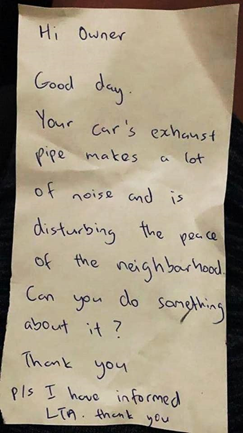 Hi Owner
Good day.
Your car's exhaust
pipe makes a lot
of noise and is
disturbing the peace
of the neighbourhood.
Can you do something
about it?
Thank you
p/s I have informed
LTA. thank you